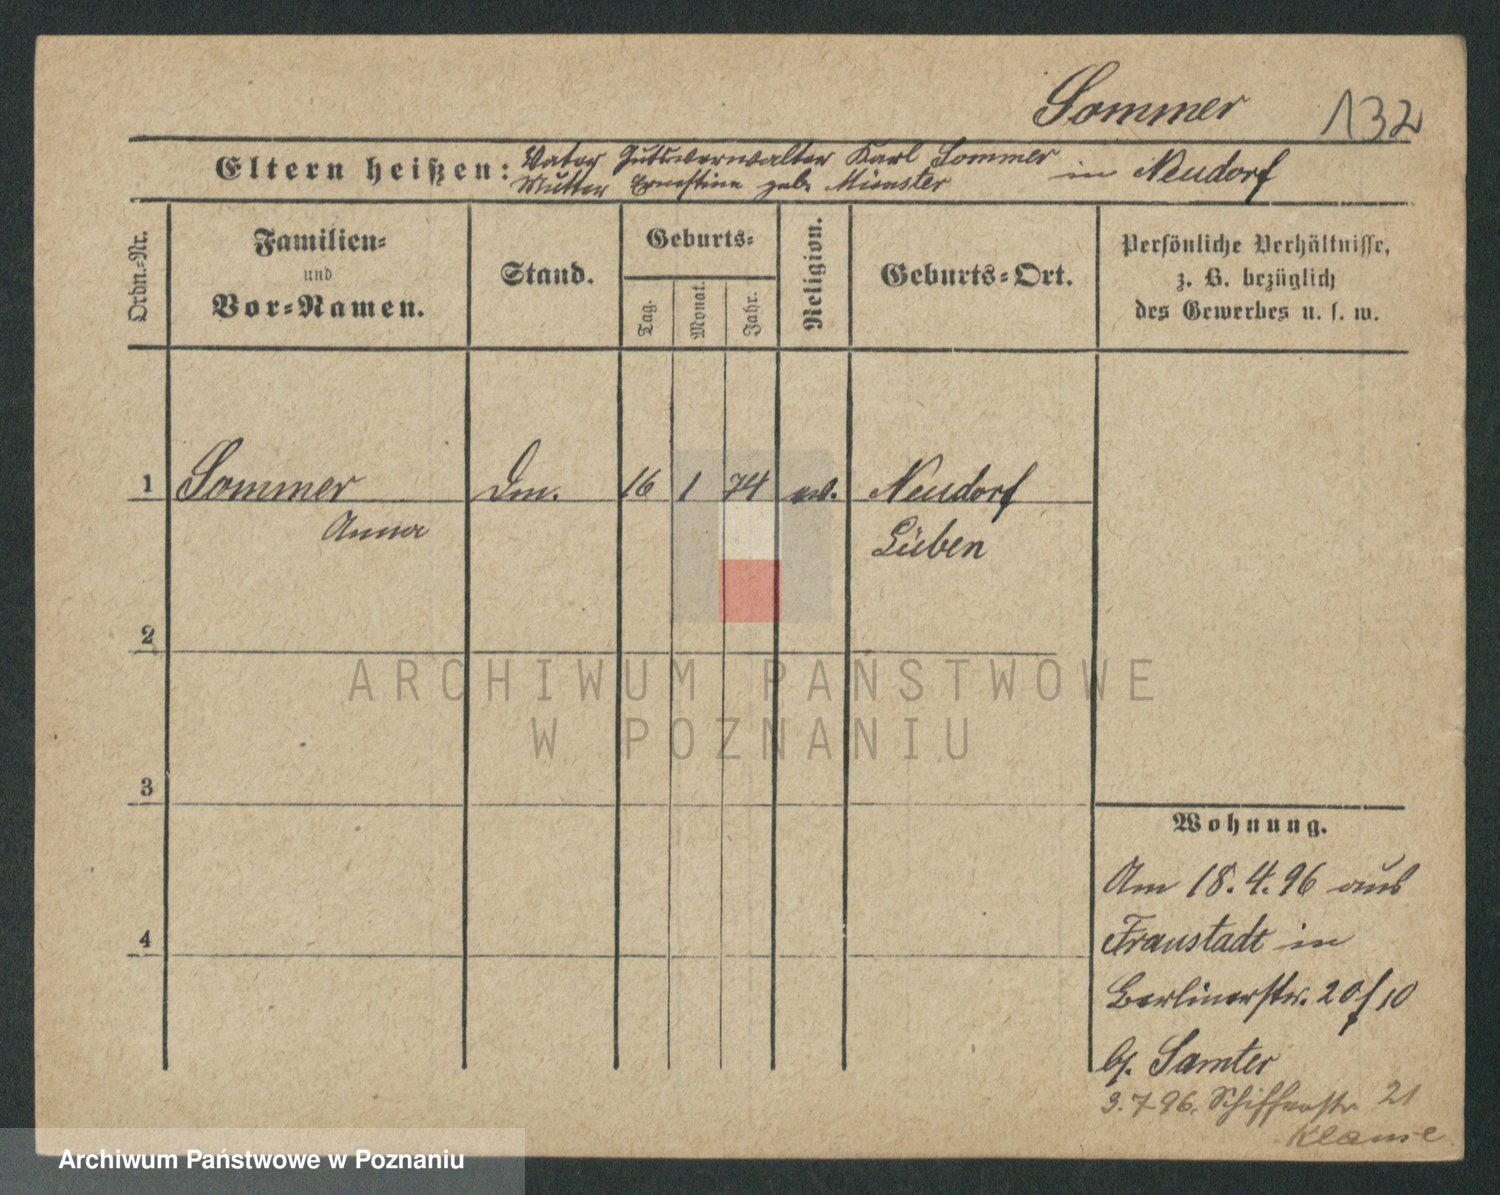 Sommer 132
Eltern heißen: Vater Gutsverwalter Karl Sommer
Mutter Ernestine geb. Münster in Neudorf
Ordn.-Nr.
Familien-
und
Vor-Namen.
Stand.
Geburts-
Tag.
Monat.
Jahr.
Religion.
Geburts-Ort.
Persönliche Verhältnisse,
z. B. bezüglich
des Gewerbes u. s. w.
1 Sommer Dm. 16 1 74 ev. Neudorf
Anna Lüben
2
3
4
Wohnung.
Am 18.4.96 aus
Fraustadt in
Berlinerstr. 20 10
b/. Samter
3.7.96. Schifferstr. 21
ARCHIWUM PAŃSTWOWE
W POZNANIU
Archiwum Państwowe w Poznaniu